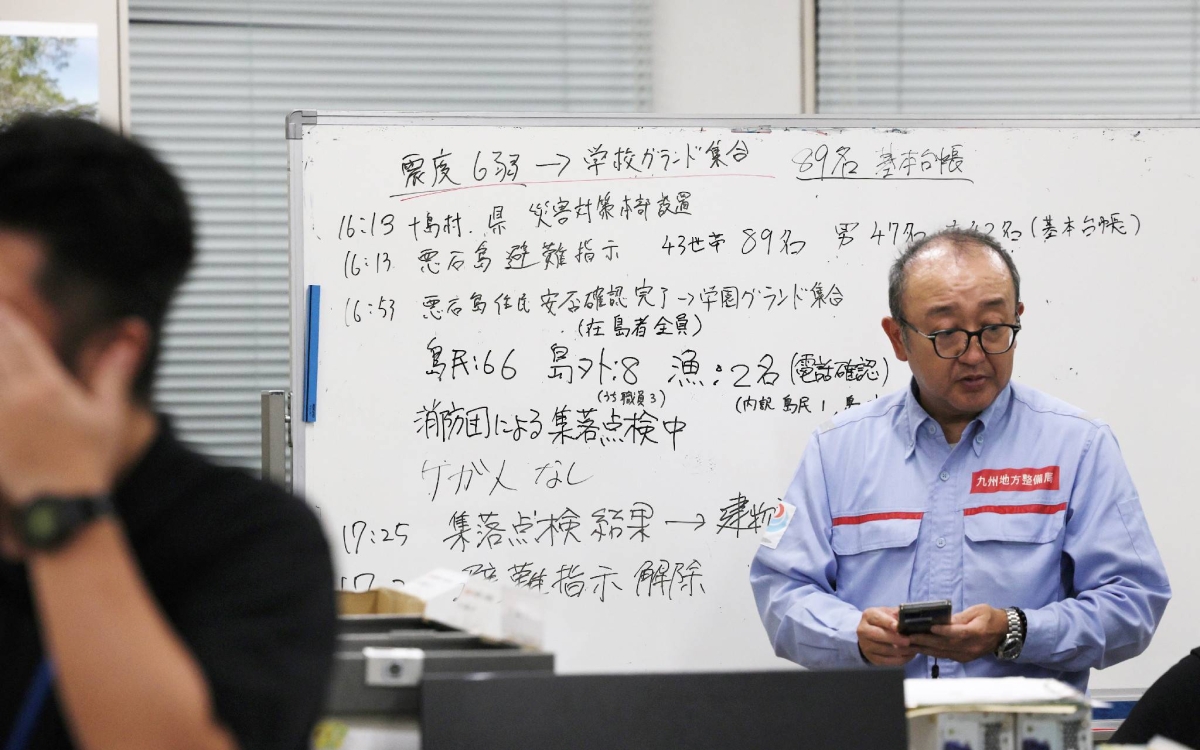 震度6弱→学校グランド集合 89名 基本台帳
16:13 十島村.県 災害対策本部設置
16:13 悪石島避難指示 43世帯 89名 男47名 (基本台帳)
16:53 悪石島住民 安否確認完了→学園グランド集合
(在島者全員)
島民:66 島外:8 漁:2名(電話確認)
(うち職員3) (内訳 島民1,
消防団による集落点検中
ケガ人なし
17:25 集落点検結果→建物
避難指示解除
九州地方整備局